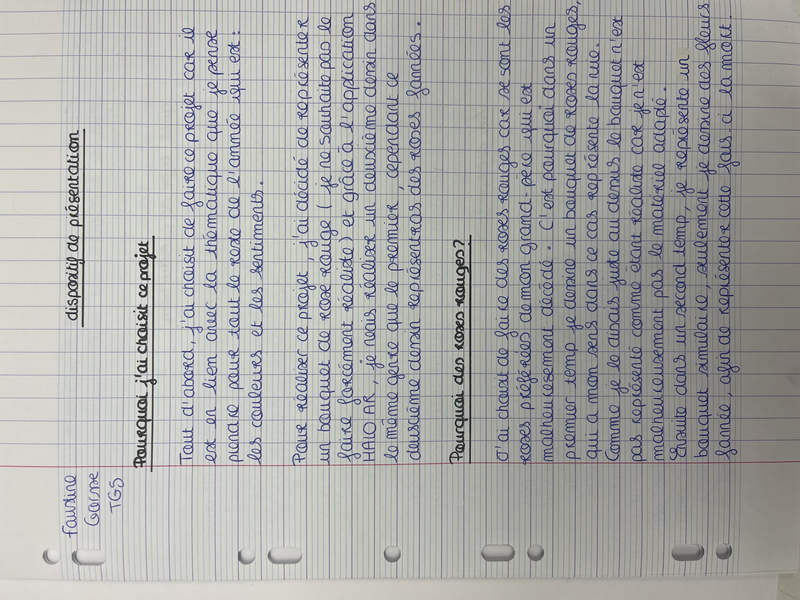 Faustine
Gorsse
TG5
dispositif de présentation
Pourquoi j'ai choisit ce projet
Tout d'abord, j'ai choisit de faire ce projet car il
est en lien avec la thématique que je pense
prendre pour tout le reste de l'année qui est :
les couleurs et les sentiments.
Pour réaliser ce projet, j'ai décidé de représenter
un bouquet de rose rouge (je ne souhaite pas le
faire forcément réaliste) et grâce à l'application
HALO AR, je vais réaliser un deuxième dessin dans
le même genre que le premier, cependant ce
deuxième dessin représentras des roses fannées.
Pourquoi des roses rouges?
J'ai choisit de faire des roses rouges car se sont les
roses préférées de mon grand-père qui est
malheureusement décédé. C'est pourquoi dans un
premier temp je dessine un bouquet de roses rouges,
qui a mon sens dans ce cas représente la vie.
Comme je le disais juste au dessus le bouquet n'est
pas représenté comme étant réaliste car je n'est
malheureusement pas le matériel adapté.
Ensuite dans un second temp, je représente un
bouquet similaire, seulement je dessine des fleurs
fannée, afin de représenter cette fois ci la mort.